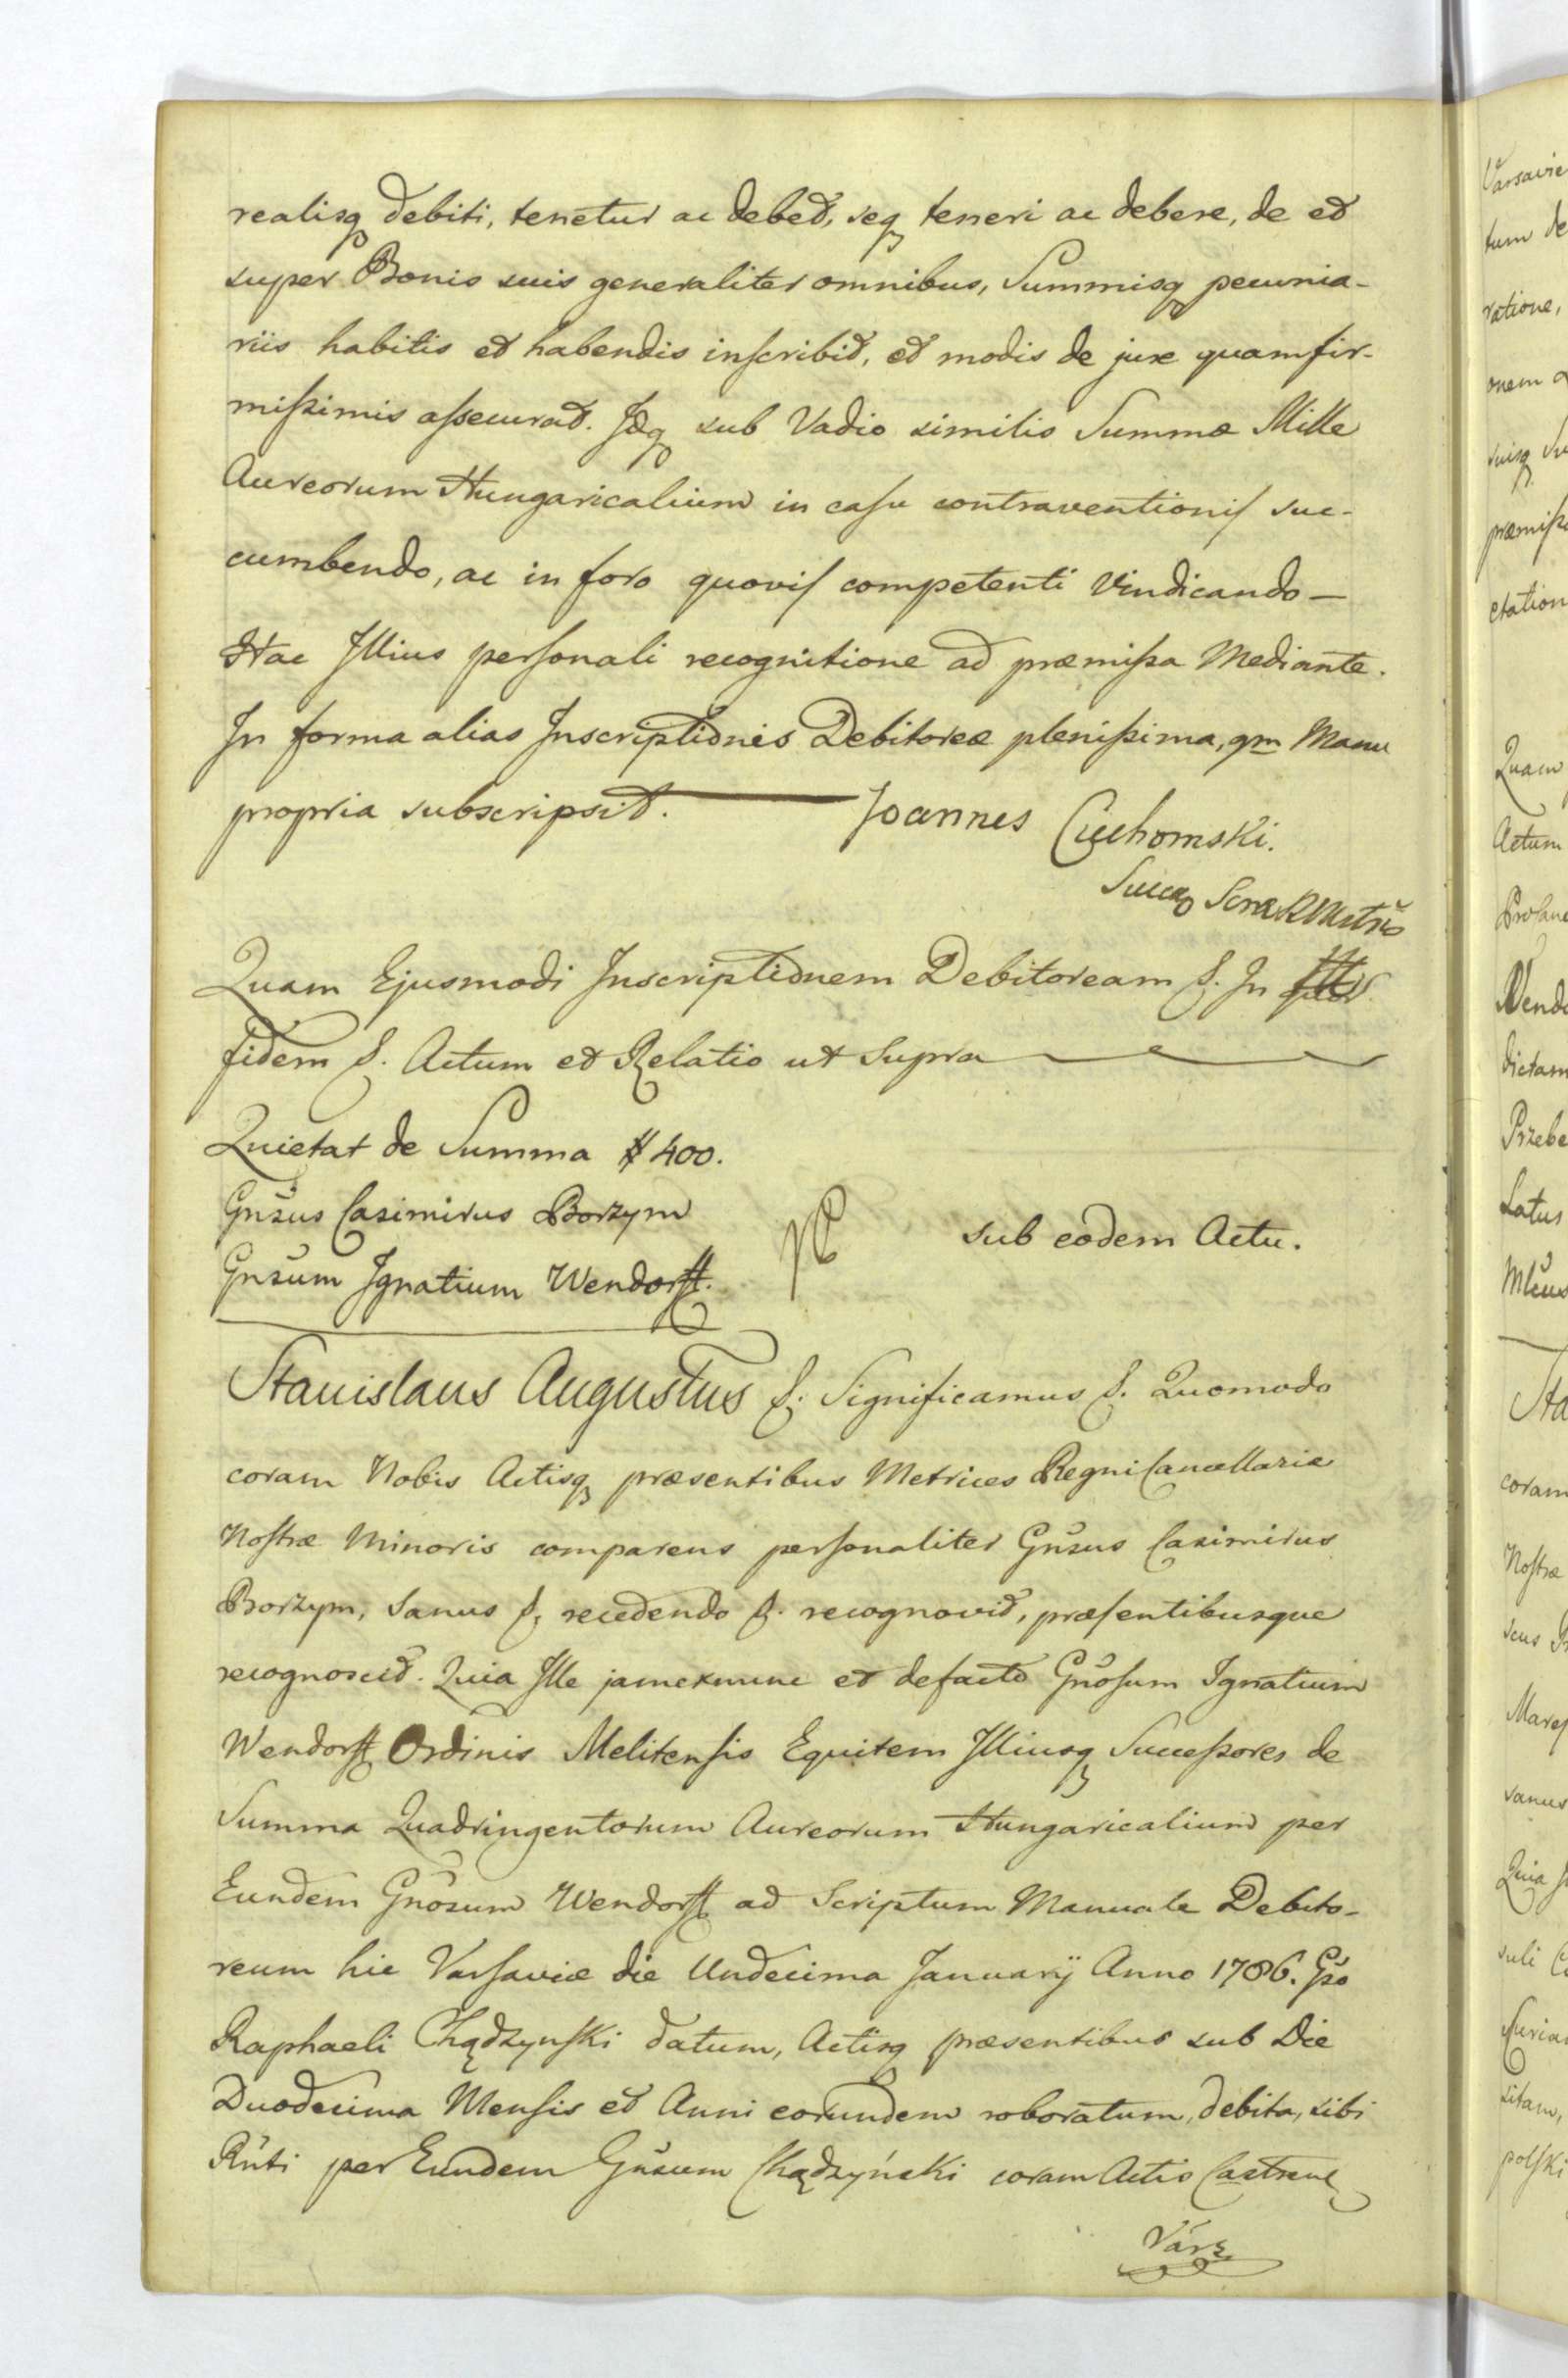 realisq debiti, tenetur ac debet, seq teneri ac debere, de et
super Bonis suis generaliter omnibus, Summisq pecunia-
riis habitis et habendis inscribit, et modis de jure quamfir-
missimis assecurat. Idq sub Vadio similis Summæ Mille
Aureorum Hungaricalium in casu contraventionis suc-
cumbendo, ac in foro quovis competenti Vindicando —
Hac Illius personali recognitione ad præmissa Mediante.
In forma alias Inscriptionis Debitoreæ plenissima, qm Manu
propria subscripsit. — Joannes Ciechomski.
Quam Ejusmodi Inscriptionem Debitoream &. In
fidem &. Actum et Relatio ut Supra
Quietat de Summa # 400.
Gnsus Casimirus Borzym
sub eodem Actu.
Gnsum Ignatium Wendorff.
Stanislaus Augustus &. Significamus &. Quomodo
coram Nobis Actisq præsentibus Metrices Regni Cancellariæ
Nostræ Minoris comparens personaliter Gnsus Casimirus
Borzym, Sanus &. recedendo &. recognovit, præsentibusque
recognoscit. Quia Ille jamexnunc et defacto Gnosum Ignatium
Wendorff Ordinis Melitensis Equitem Illiusq Successores de
Summa Quadringentorum Aureorum Hungaricalium per
Eundem Gnosum Wendorff ad Scriptum Manuale Debito-
reum hic Varsaviæ die Undecima Januarij Anno 1786. Gso
Raphaeli Chądzynski datum, Actisq præsentibus sub Die
Duodecima Mensis et Anni eorundem roboratum, debita, sibi
Rnti per Eundem Gnsum Chądzyński coram Actis Castren
Vars
Varsavie
tum de
ratione,
onem
suisq Su
præmiss
ctation
Quam
Actum
Vend
dictam
Przebe
Latus
Sta
coram
Nostræ
Mares
sanus
Quia
suli
Curia
sitam,
polski